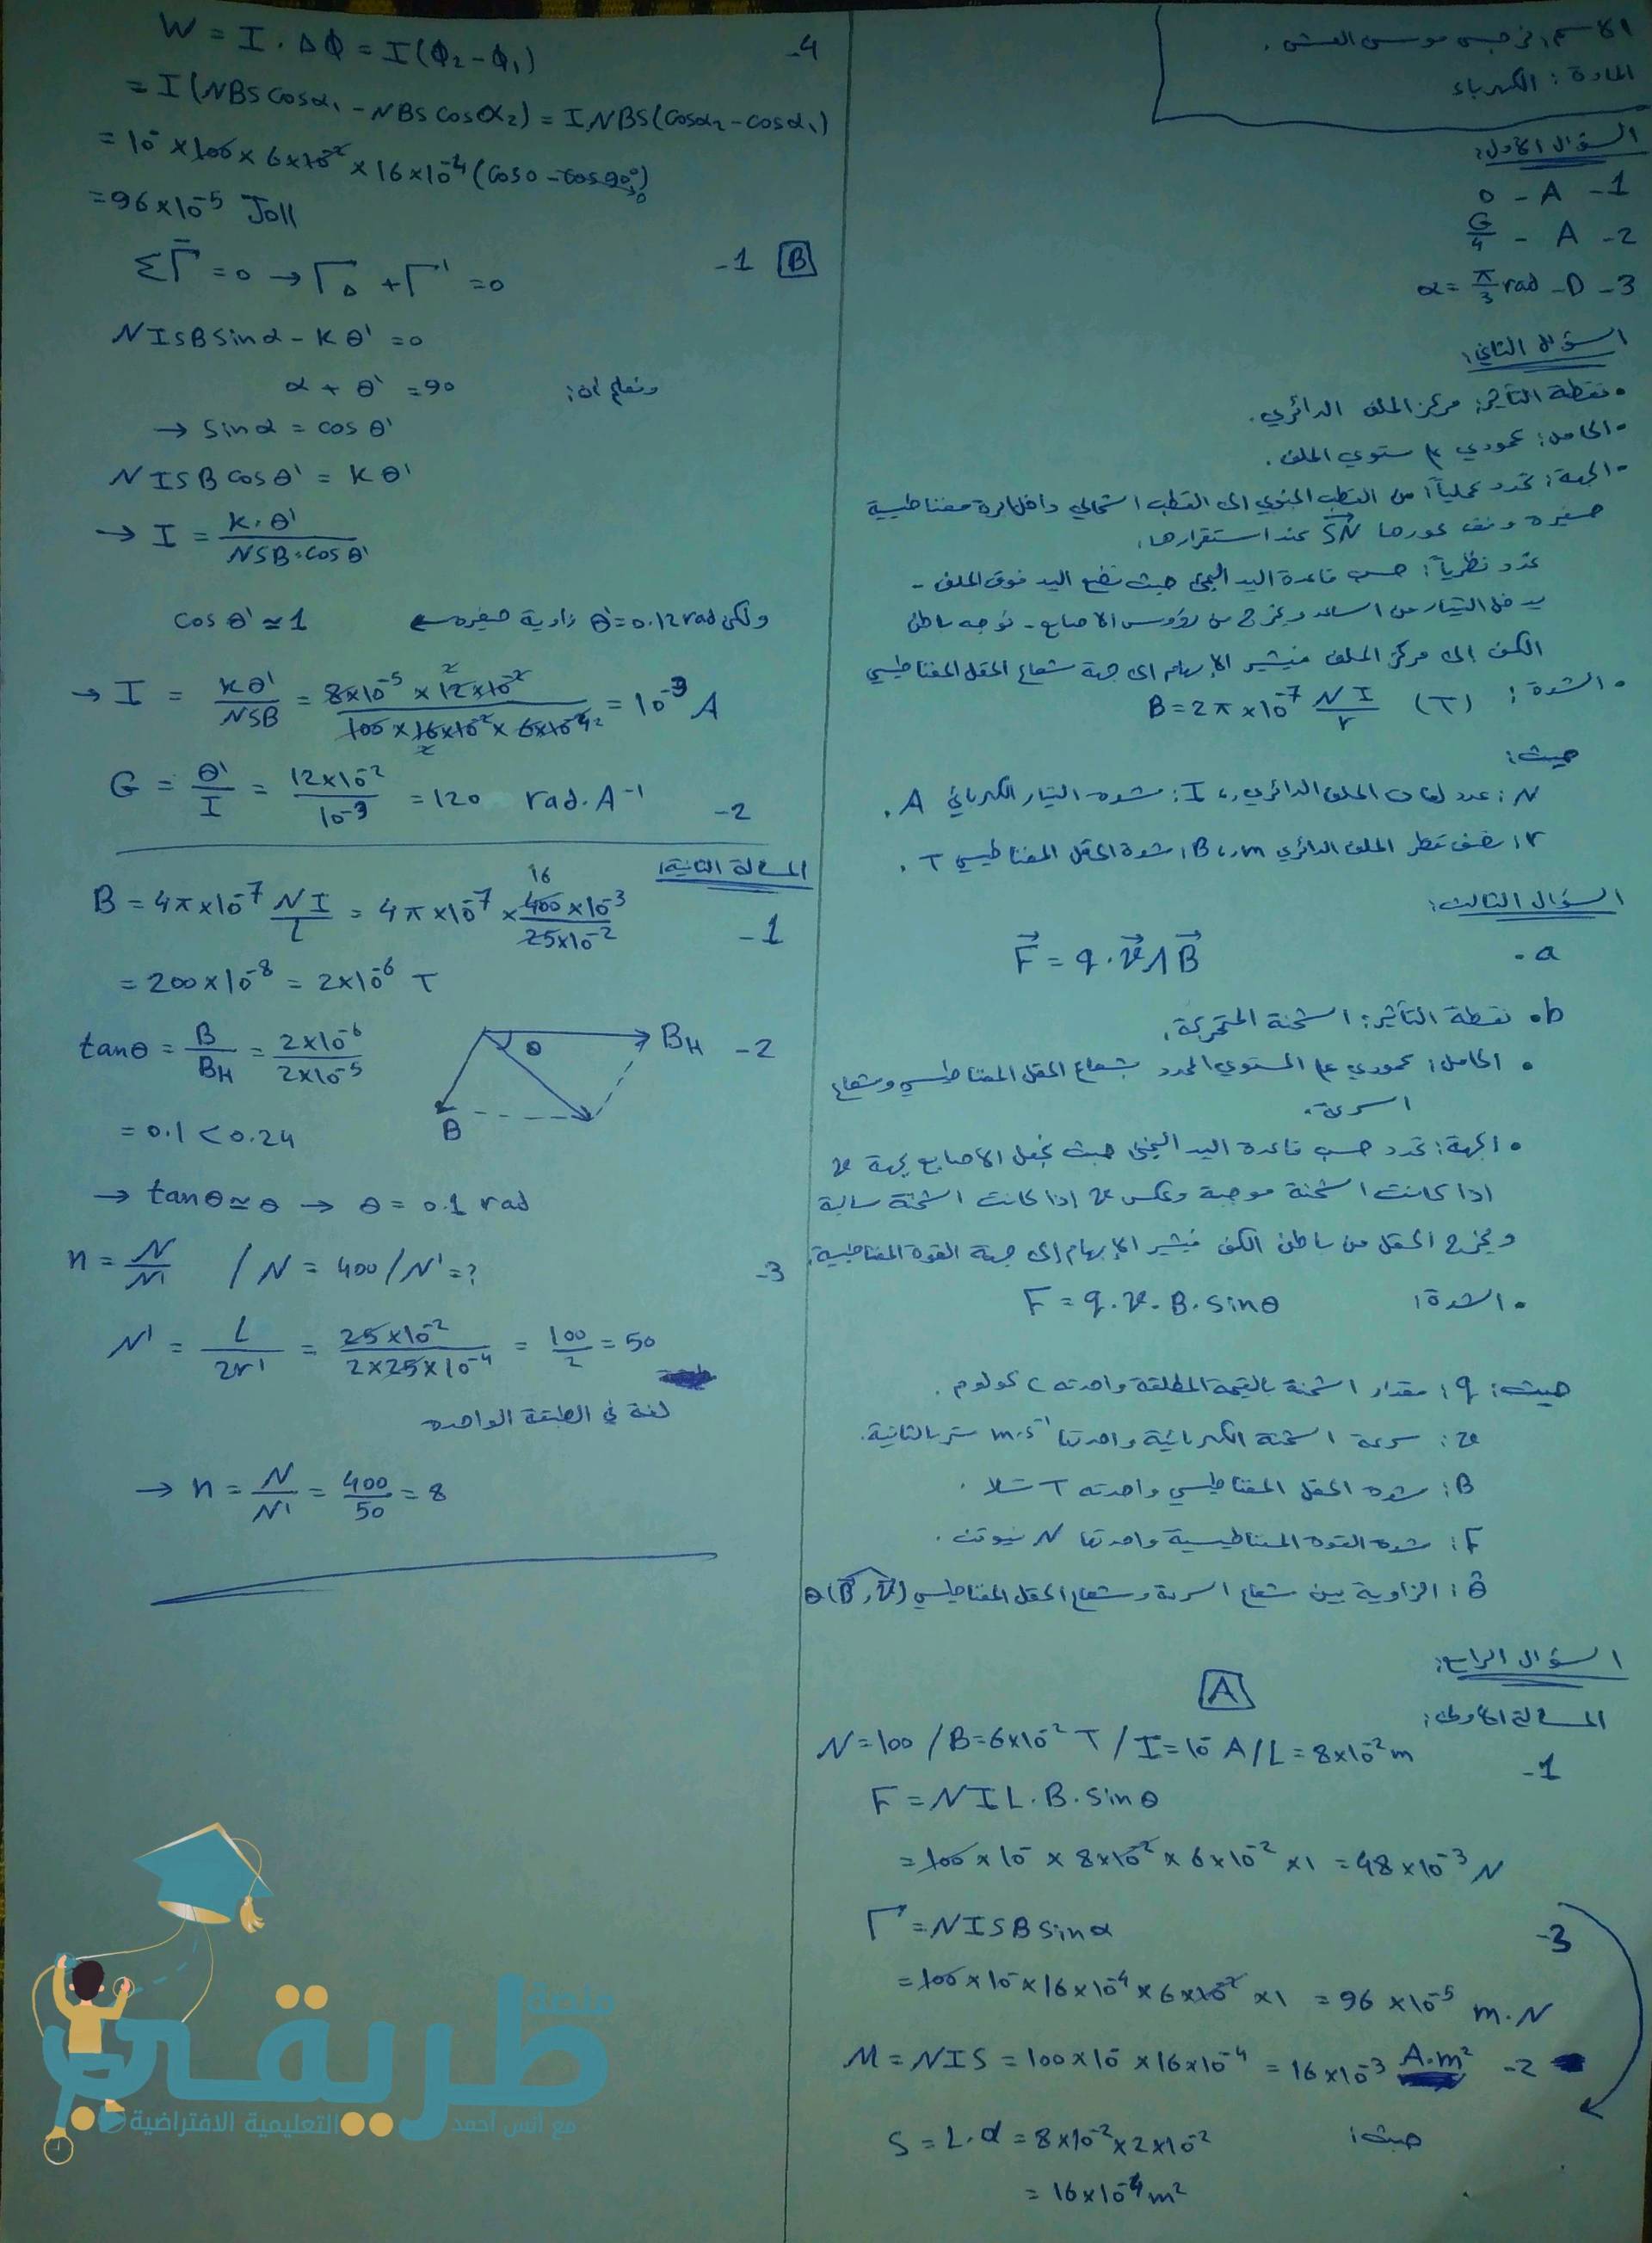 الاسم: نرجس موسى العش.
المادة: الكهرباء
السؤال الأول:
1- A - 0
2- A - G/4
3- D - α = π/3 rad
السؤال الثاني:
• نقطة التأثير: مركز الملف الدائري.
- الحامل: عمودي ع مستوي الملف.
- الجهة: تحدد عملياً: من القطب الجنوبي الى القطب الشمالي داخل ابرة مغناطيسية
صغيرة ونضع محورها SN عند استقرارها.
تحدد نظرياً: حسب قاعدة اليد اليمنى حيث نضع اليد فوق الملف -
يدخل التيار من الساعد ويخرج من رؤوس الاصابع - نوجه باطن
الكف الى مركز الملف فيشير الإبهام الى جهة شعاع الحقل المغناطيسي
• الشدة: B = 2π×10⁻⁷ NI/r (T)
حيث:
N: عدد لفات الملف الدائري، I: شدة التيار الكهربائي A.
r: نصف قطر الملف الدائري m، B: شدة الحقل المغناطيسي T.
السؤال الثالث:
a. F = q.v∧B
b. نقطة التأثير: الشحنة المتحركة.
• الحامل: عمودي ع المستوي المحدد بشعاع الحقل المغناطيسي وشعاع
السرعة.
• الجهة: تحدد حسب قاعدة اليد اليمنى حيث نجعل الاصابع بجهة v
اذا كانت الشحنة موجبة وعكس v اذا كانت الشحنة سالبة
ويخرج الحقل من باطن الكف فيشير الإبهام إلى جهة القوة المغناطيسية.
• الشدة: F = q.v.B.sinθ
حيث: q: مقدار الشحنة بالقيمة المطلقة واحدته C كولوم.
v: سرعة الشحنة الكهربائية واحدتها m.s⁻¹ متر بالثانية.
B: شدة الحقل المغناطيسي واحدته T تسلا.
F: شدة القوة المغناطيسية واحدتها N نيوتن.
θ: الزاوية بين شعاع السرعة وشعاع الحقل المغناطيسي θ(B,v)
السؤال الرابع:
A
المسألة الأولى:
N=100 / B=6×10⁻² T / I=10⁻ A / L=8×10⁻² m
-1
F = NIL.B.sinθ
= 100×10⁻×8×10⁻²×6×10⁻²×1 = 48×10⁻³ N
-3 Γ = NISBsinα
= 100×10⁻×16×10⁻⁴×6×10⁻²×1 = 96×10⁻⁵ m.N
-2 M = NIS = 100×10⁻×16×10⁻⁴ = 16×10⁻³ A.m²
حيث: S = L.d = 8×10⁻²×2×10⁻²
= 16×10⁻⁴ m²
-4 W = I.ΔΦ = I(Φ₂-Φ₁)
= I(NBS cosα₁ - NBS cosα₂) = I.NBS(cosα₂-cosα₁)
= 10⁻×100×6×10⁻²×16×10⁻⁴(cos0-cos90°) 0
= 96×10⁻⁵ Joll
B -1
ΣΓ = 0 → ΓΔ + Γ' = 0
NISBsinα - Kθ' = 0
ونعلم ان: α + θ' = 90
→ sinα = cosθ'
NISBcosθ' = Kθ'
→ I = K.θ'/NSB.cosθ'
ولكن θ'=0.12 rad زاوية صغيرة ← cosθ' ≃ 1
→ I = Kθ'/NSB = 8×10⁻⁵×12×10⁻²/100×16×10⁻²×6×10⁻⁴ = 10⁻³ A
-2 G = θ'/I = 12×10⁻²/10⁻³ = 120 rad.A⁻¹
المسألة الثانية:
-1 B = 4π×10⁻⁷ NI/L = 4π×10⁻⁷ × 400×10⁻³/25×10⁻² 16
= 200×10⁻⁸ = 2×10⁻⁶ T
-2 tanθ = B/BH = 2×10⁻⁶/2×10⁻⁵
BH
θ
B
= 0.1 < 0.24
→ tanθ ≃ θ → θ = 0.1 rad
-3 n = N/N' / N = 400 / N' = ?
N' = L/2r' = 25×10⁻²/2×25×10⁻⁴ = 100/2 = 50
لفة في الطبقة الواحدة
→ n = N/N' = 400/50 = 8
منصة
طريقي
التعليمية الافتراضية
مع أنس أحمد